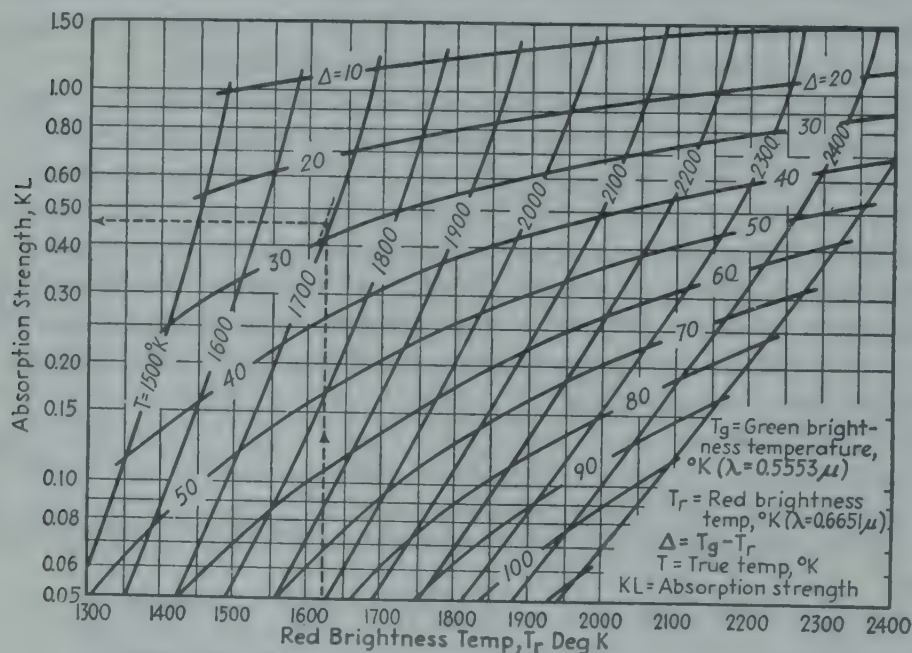 Absorption Strength, KL
1.50
1.00
0.80
0.60
0.50
0.40
0.30
0.20
0.15
0.10
0.08
0.06
0.05
Δ=10
Δ=20
20
30
30
40
40
50
50
60
70
80
90
100
T=1500°K
1600
1700
1800
1900
2000
2100
2200
2300
2400
Tg=Green bright-
ness temperature,
°K (λ=0.5553μ)
Tr=Red brightness
temp, °K (λ=0.6651μ)
Δ=Tg-Tr
T=True temp, °K
KL=Absorption strength
1300 1400 1500 1600 1700 1800 1900 2000 2100 2200 2300 2400
Red Brightness Temp, Tr Deg K